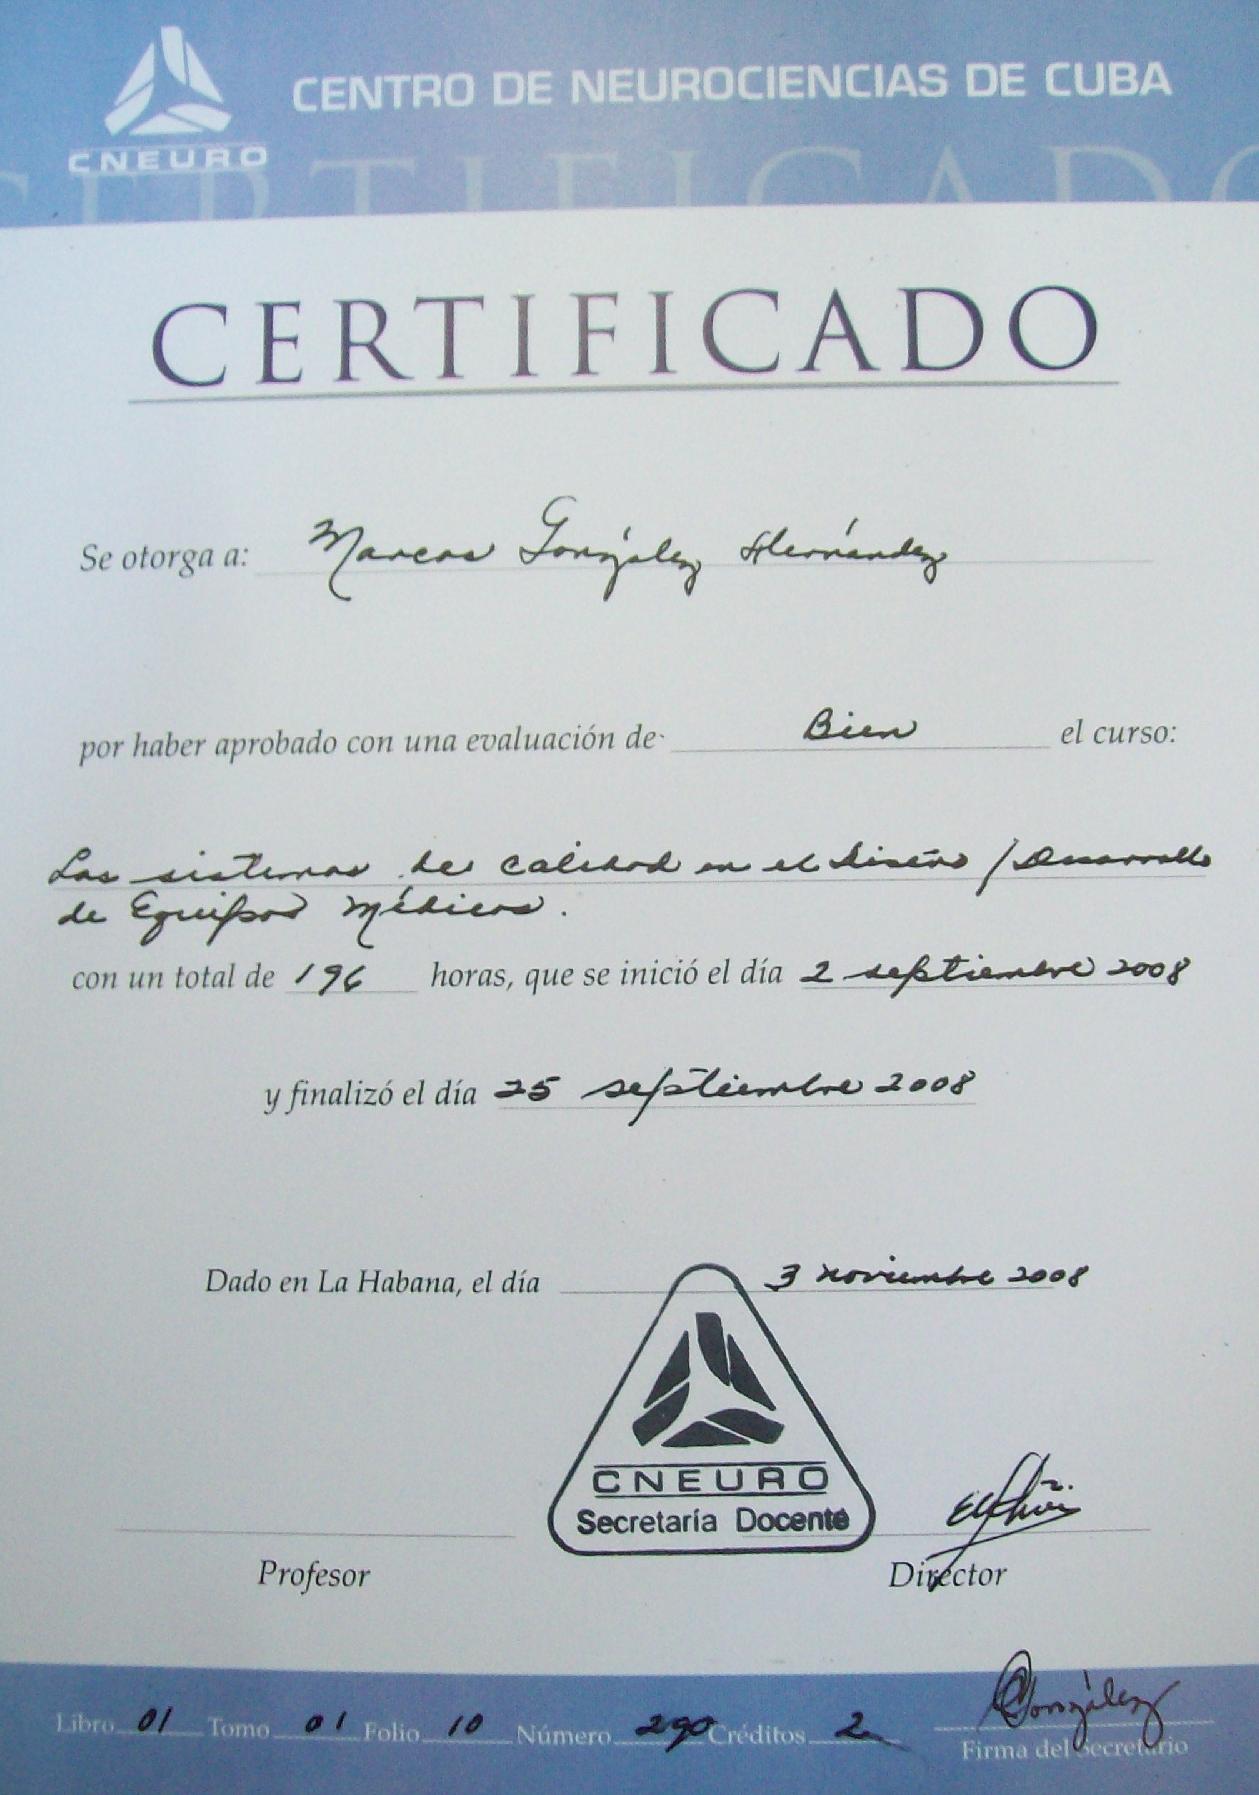 CENTRO DE NEUROCIENCIAS DE CUBA
CNEURO
CERTIFICADO
CERTIFICADO
Se otorga a: Marcos González Hernández
por haber aprobado con una evaluación de Bien el curso:
Los sistemas de calidad en el diseño / Desarrollo
de Equipos Médicos.
con un total de 196 horas, que se inició el día 2 septiembre 2008
y finalizó el día 25 septiembre 2008
Dado en La Habana, el día 3 noviembre 2008
CNEURO
Secretaría Docente
Profesor Director
González
Libro 01 Tomo 01 Folio 10 Número 290 Créditos 2
Firma del Secretario